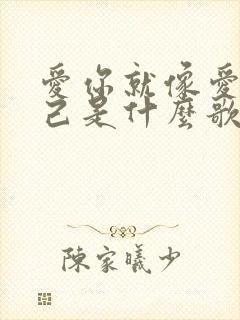 愛你就像愛
己是什麼歌
陳家曦少